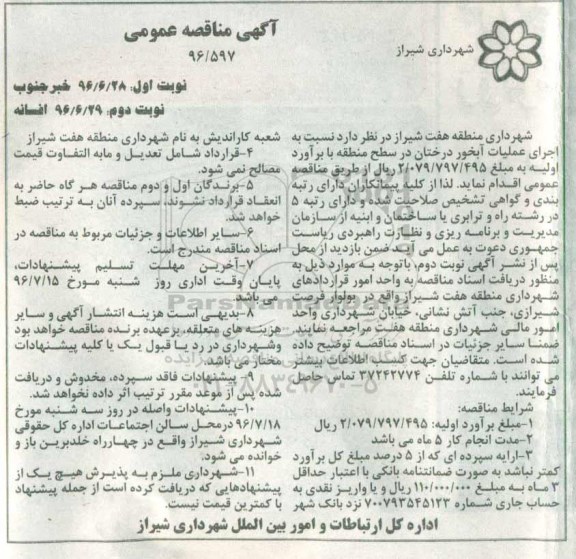 آگهی مناقصه عمومی
۹۶/۵۹۷
شهرداری شیراز
نوبت اول: ۹۶/۶/۲۸ خبرجنوب
نوبت دوم: ۹۶/۶/۲۹ افسانه
شهرداری منطقه هفت شیراز در نظر دارد نسبت به
اجرای عملیات آبخور درختان در سطح منطقه با برآورد
اولیه به مبلغ ۲/۰۷۹/۷۹۷/۴۹۵ ریال از طریق مناقصه
عمومی اقدام نماید. لذا از کلیه پیمانکاران دارای رتبه
بندی و گواهی تشخیص صلاحیت شده و دارای رتبه ۵
در رشته راه و ترابری یا ساختمان و ابنیه از سازمان
مدیریت و برنامه ریزی و نظارت راهبردی ریاست
جمهوری دعوت به عمل می آید ضمن بازدید از محل
پس از نشر آگهی نوبت دوم، باتوجه به موارد ذیل به
منظور دریافت اسناد مناقصه به واحد امور قراردادهای
شهرداری منطقه هفت شیراز واقع در بولوار فرصت
شیرازی، جنب آتش نشانی، خیابان شهرداری واحد
امور مالی شهرداری منطقه هفت مراجعه نمایند.
ضمنا سایر جزئیات در اسناد مناقصه توضیح داده
شده است. متقاضیان جهت کسب اطلاعات بیشتر
می توانند با شماره تلفن ۳۷۲۴۲۷۷۴ تماس حاصل
فرمایند.
شرایط مناقصه:
۱-مبلغ برآورد اولیه: ۲/۰۷۹/۷۹۷/۴۹۵ ریال
۲-مدت انجام کار ۵ ماه می باشد
۳-ارایه سپرده ای که از ۵ درصد مبلغ کل برآورد
کمتر نباشد به صورت ضمانتنامه بانکی با اعتبار حداقل
۳ ماه به مبلغ ۱۱۰/۰۰۰/۰۰۰ ریال و یا واریز نقدی به
حساب جاری شماره ۷۰۰۷۹۳۵۴۵۱۲۳ نزد بانک شهر
شعبه کاراندیش به نام شهرداری منطقه هفت شیراز
۴-قرارداد شامل تعدیل و مابه التفاوت قیمت
مصالح نمی شود.
۵-برندگان اول و دوم مناقصه هر گاه حاضر به
انعقاد قرارداد نشوند، سپرده آنان به ترتیب ضبط
خواهد شد.
۶-سایر اطلاعات و جزئیات مربوط به مناقصه در
اسناد مناقصه مندرج است.
۷-آخرین مهلت تسلیم پیشنهادات،
پایان وقت اداری روز شنبه مورخ ۹۶/۷/۱۵
می باشد.
۸-بدیهی است هزینه انتشار آگهی و سایر
هزینه های متعلقه، برعهده برنده مناقصه خواهد بود
وشهرداری در رد یا قبول یک یا کلیه پیشنهادات
مختار می باشد.
۹- پیشنهادات فاقد سپرده، مخدوش و دریافت
شده پس از موعد مقرر ترتیب اثر داده نخواهد شد.
۱۰-پیشنهادات واصله در روز سه شنبه مورخ
۹۶/۷/۱۸ درمحل سالن اجتماعات اداره کل حقوقی
شهرداری شیراز واقع در چهارراه خلدبرین باز و
خوانده می شود.
۱۱-شهرداری ملزم به پذیرش هیچ یک از
پیشنهادهایی که دریافت کرده است از جمله پیشنهاد
با کمترین قیمت نیست.
اداره کل ارتباطات و امور بین الملل شهرداری شیراز